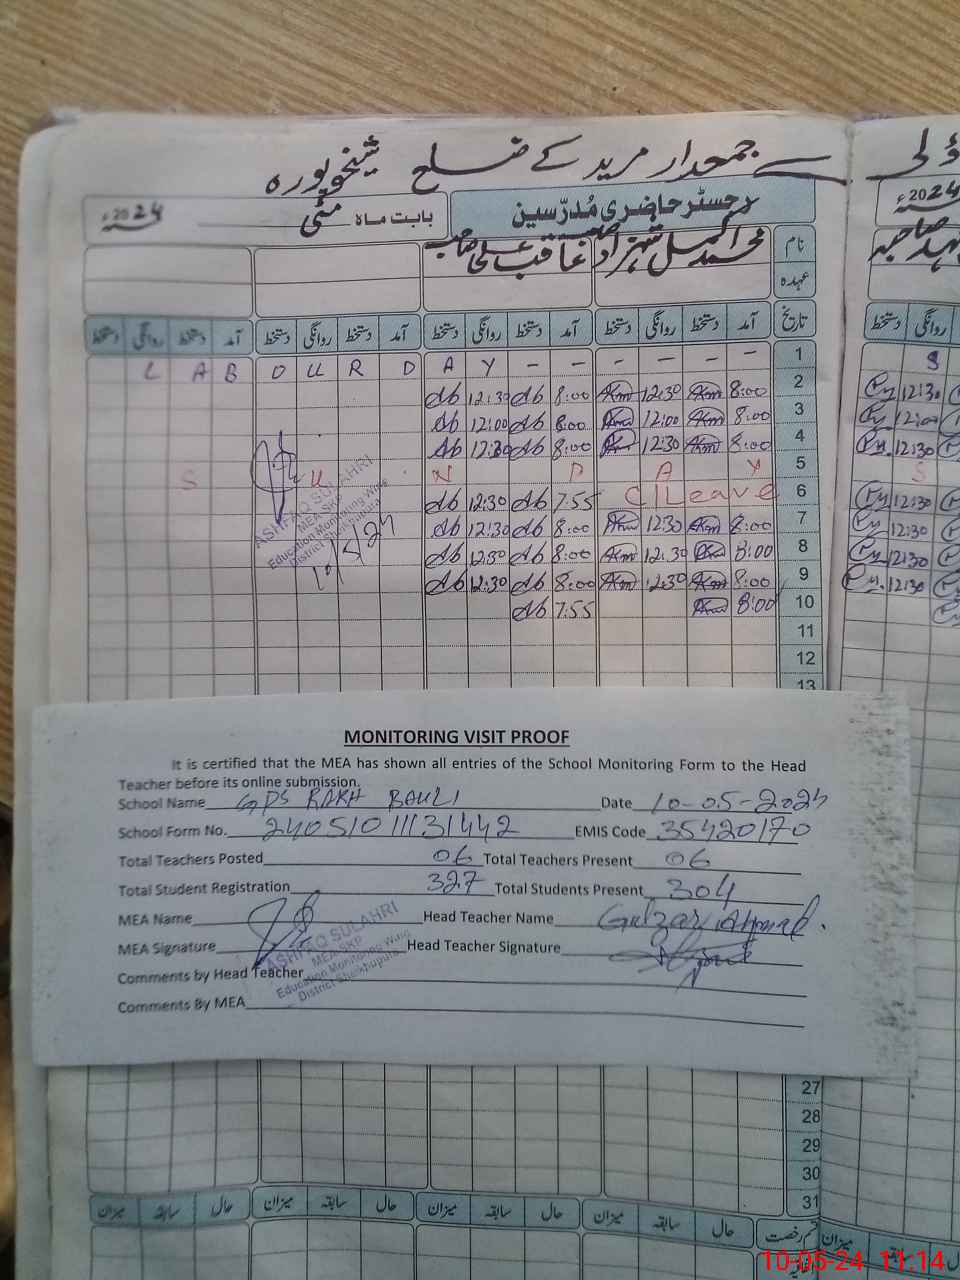 جمعدار مرید کے ضلع شیخوپورہ
رجسٹر حاضری مُدرّسین
بابت ماہ مئی 2024ء
2024ء
نام
محمد شہزاد صاحب
علی صاحب
صاحبہ
عہدہ
تاریخ آمد دستخط روانگی دستخط آمد دستخط روانگی دستخط آمد دستخط روانگی دستخط آمد دستخط روانگی دستخط
روانگی دستخط
1 L A B O U R D A Y - - - - - -
2 12:30 8:00 12:30 8:00 12:30
3 12:00 8:00 12:00 8:00 12:00
4 12:30 8:00 12:30 8:00 12:30
5 S U N D A Y S
6 12:30 7:55 C/Leave 12:30
7 12:30 8:00 12:30 8:00 12:30
8 12:30 8:00 12:30 8:00 12:30
9 12:30 8:00 12:30 8:00 12:30
10 7:55 8:00
11
12
13
ASHFAQ SULAHRI
MEA SKP
Education Monitoring Wing
District Sheikhupura
10/5/24
MONITORING VISIT PROOF
It is certified that the MEA has shown all entries of the School Monitoring Form to the Head
Teacher before its online submission.
School Name GPS RAKH BAULI Date 10-05-2024
School Form No. 2405101131442 EMIS Code 35420170
Total Teachers Posted 06 Total Teachers Present 06
Total Student Registration 327 Total Students Present 304
MEA Name Head Teacher Name Gulzar Ahmad.
MEA Signature Head Teacher Signature
Comments by Head Teacher
Comments By MEA
ASHFAQ SULAHRI
MEA SKP
Education Monitoring Wing
District Sheikhupura
27
28
29
30
31
قسم رخصت حال سابقہ میزان حال سابقہ میزان حال سابقہ میزان حال سابقہ میزان
سابقہ میزان
10-05-24 11:14